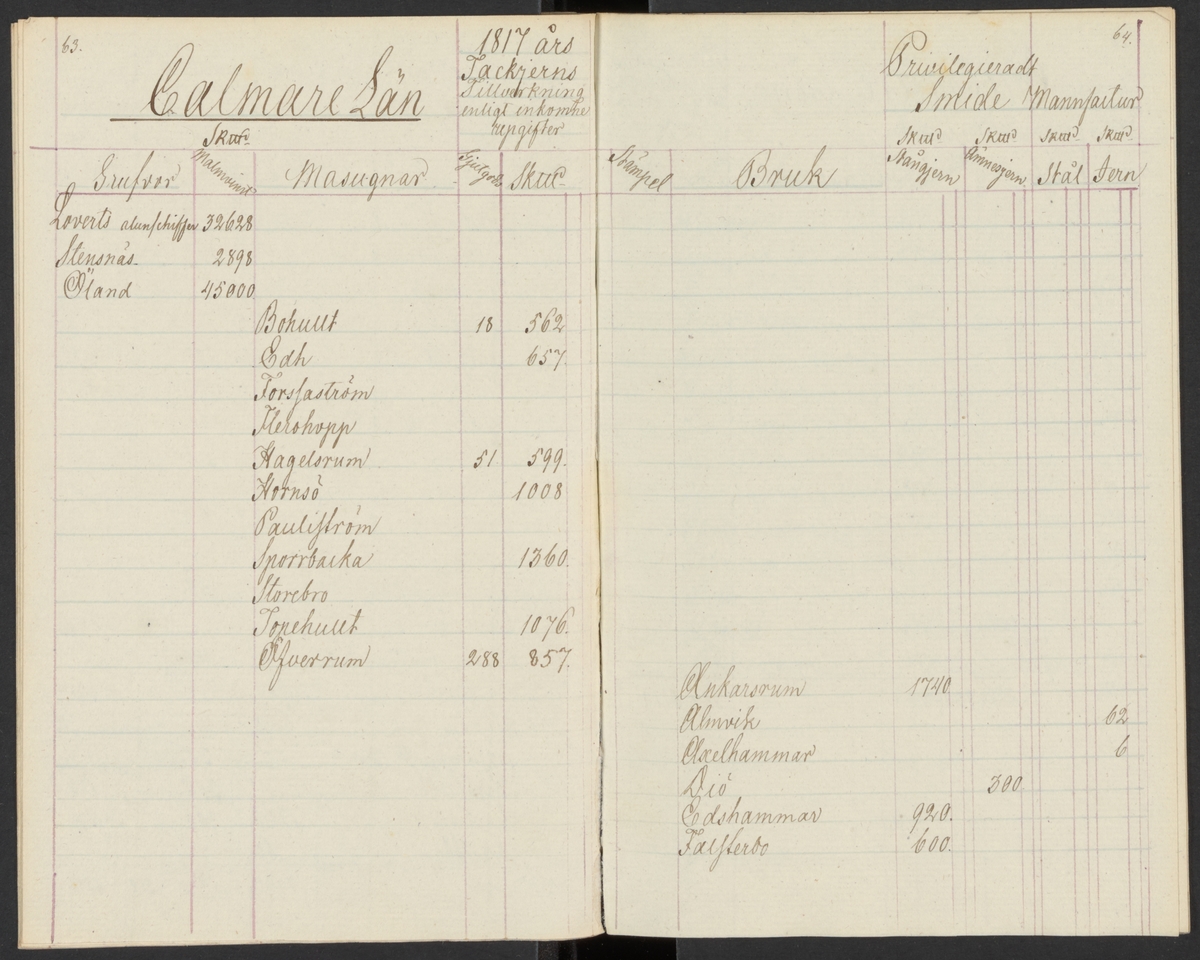 63.
Calmare Län
1817 års
Tackjerns
Tillverkning
enligt inkomne
uppgifter
Skttd
Grufvor Malmvinst Masugnar Gjutgods Skttd
Loverts alunschiffer 32628
Stensnäs 2898
Öland 45000
Bohult 18 562
Edh 657
Forssaström
Flerohopp
Hagelsrum 51 599.
Hornsö 1008
Pauliström
Sporrbacka 1360.
Storebro
Tonehult 1076.
Öfverrum 288 857.
64.
Privilegieradt
Smide Mannfaitur
Skttd Skttd Skttd Skttd
Stämpel Bruk Stångjern Ämnesjern Stål Jern
Ankarsrum 1740
Almvik 62
Axelhammar 6
Diö 300
Edshammar 920.
Falsterbo 600.